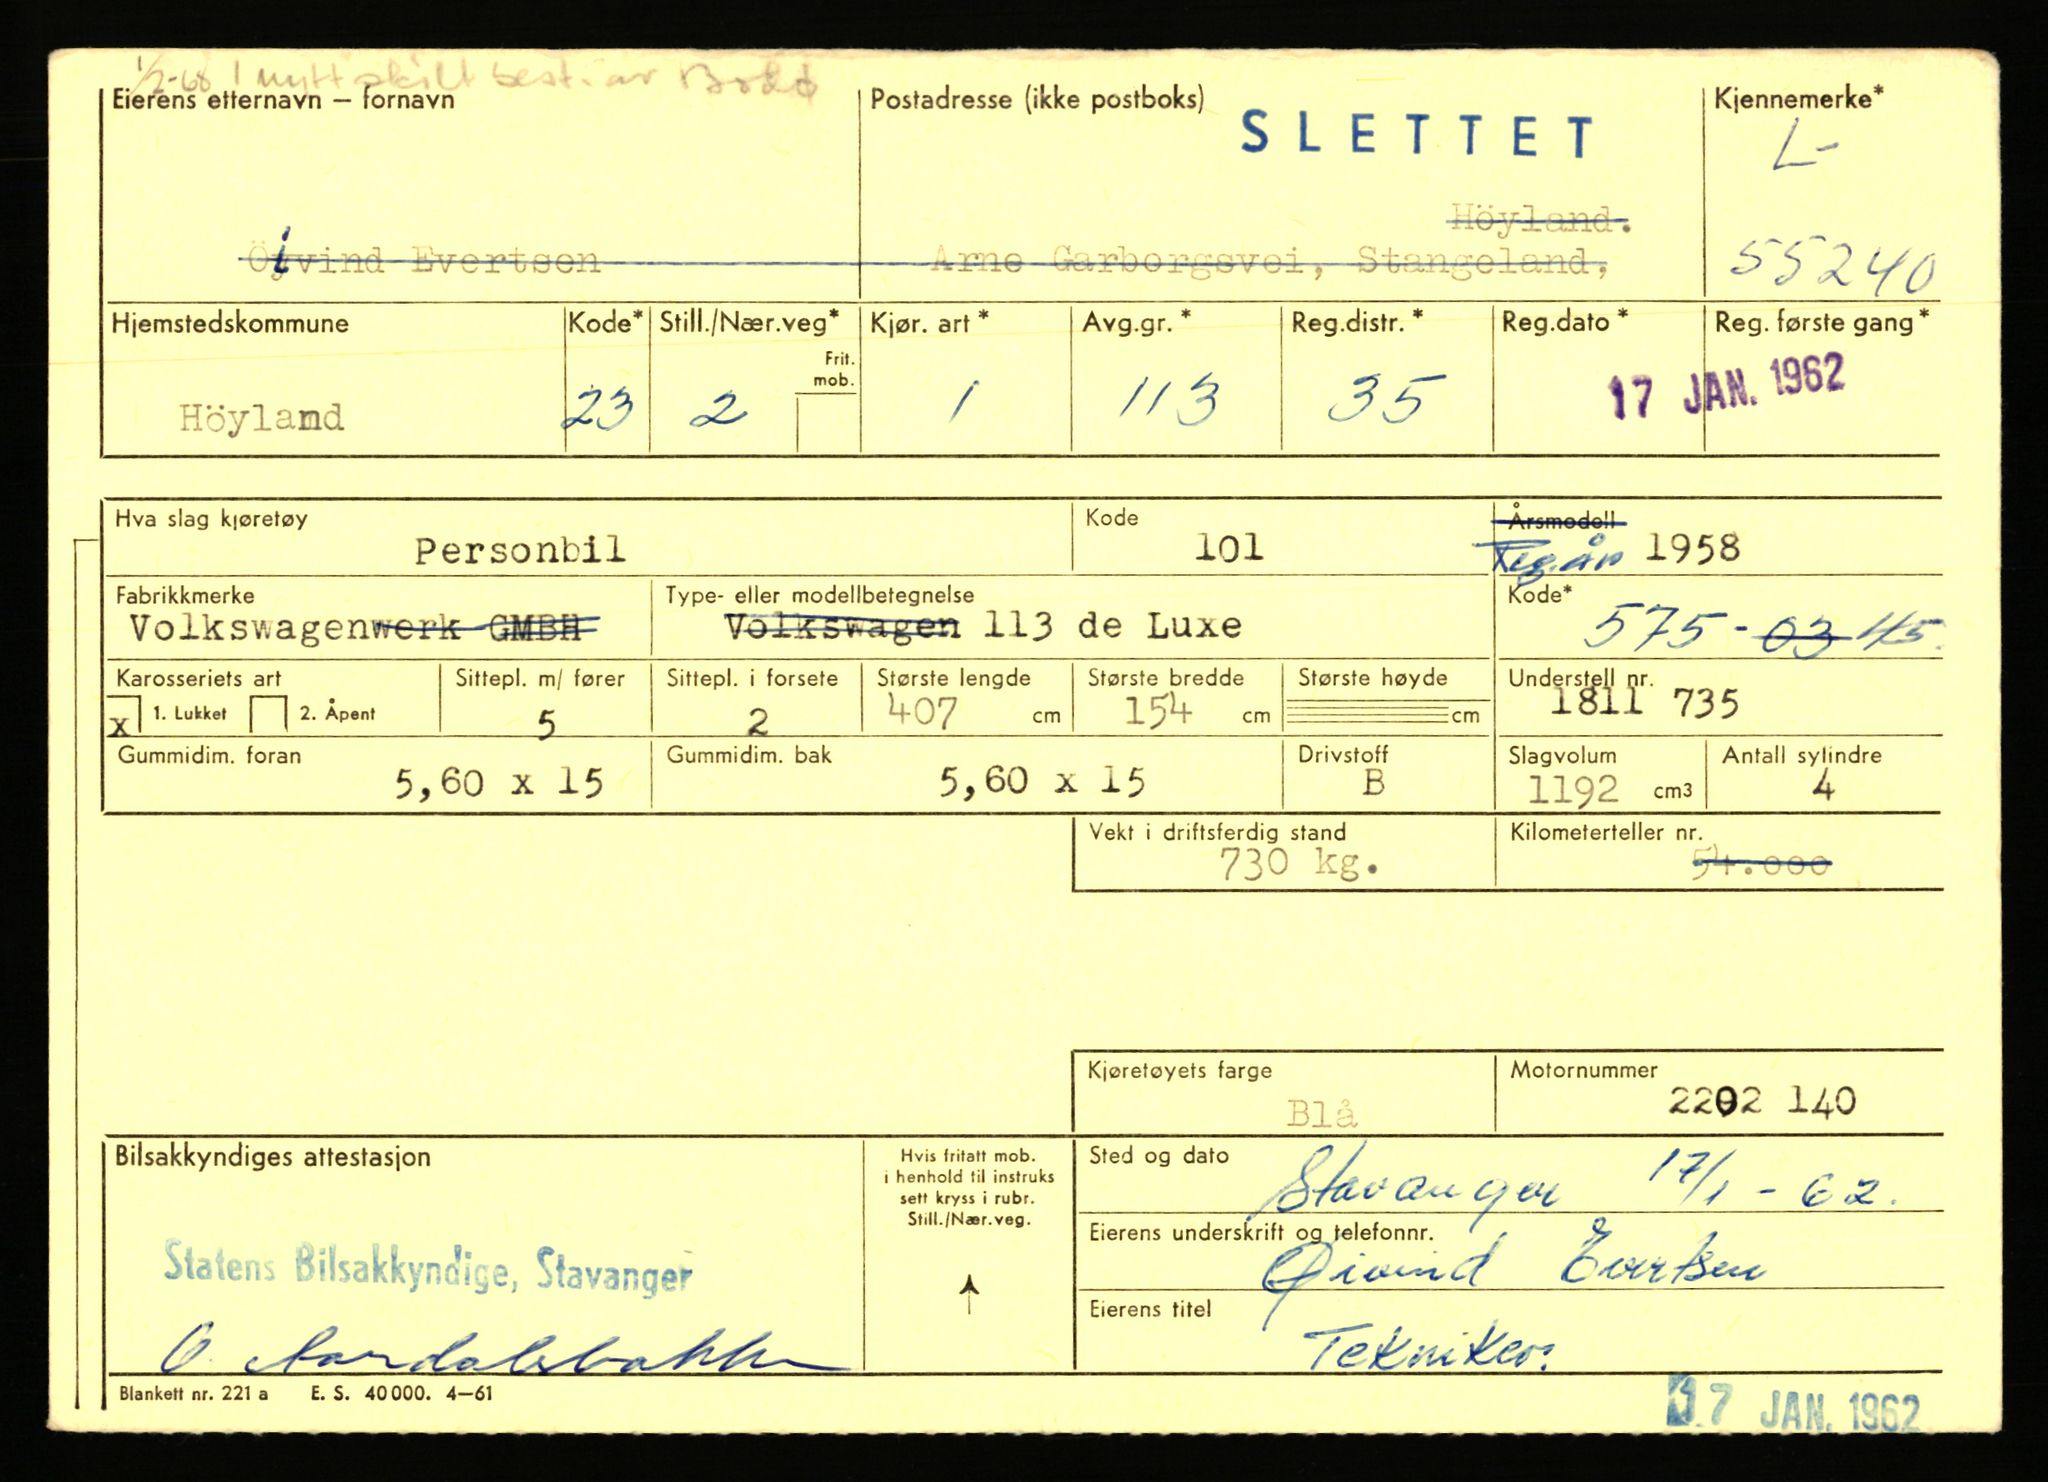 1/2-68 1 nytt skilt best. av Bodø
Eierens etternavn – fornavn Postadresse (ikke postboks) Kjennemerke*
SLETTET L-
Höyland.
Öivind Evertsen Arne Garborgsvei, Stangeland, 55240
Hjemstedskommune Kode* Still./Nær.veg* Kjør. art* Avg.gr.* Reg.distr.* Reg.dato* Reg. første gang*
Frit. mob.
Höyland 23 2 1 113 35 17 JAN. 1962
Hva slag kjøretøy Kode Årsmodell
Personbil 101 Reg.år 1958
Fabrikkmerke Type- eller modellbetegnelse Kode*
Volkswagenwerk GMBH Volkswagen 113 de Luxe 575-03 45.
Karosseriets art Sittepl. m/ fører Sittepl. i forsete Største lengde Største bredde Største høyde Understell nr.
x 1. Lukket 2. Åpent 5 2 407 cm 154 cm cm 1811 735
Gummidim. foran Gummidim. bak Drivstoff Slagvolum Antall sylindre
5,60 x 15 5,60 x 15 B 1192 cm3 4
Vekt i driftsferdig stand Kilometerteller nr.
730 kg. 54.000
Kjøretøyets farge Motornummer
Blå 2202 140
Bilsakkyndiges attestasjon
Statens Bilsakkyndige, Stavanger
O. Aardalsbakke
Hvis fritatt mob.
i henhold til instruks
sett kryss i rubr.
Still./Nær.veg.
Sted og dato Stavanger 17/1-62.
Eierens underskrift og telefonnr.
Øivind Evertsen
Eierens titel
Tekniker.
Blankett nr. 221 a E. S. 40 000. 4–61
17 JAN. 1962